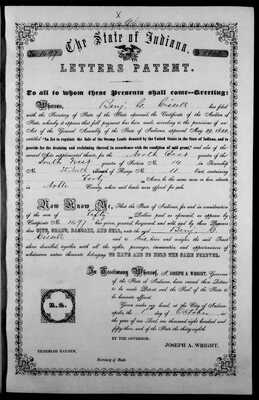 The State of Indiana.
LETTERS PATENT.
To all to whom these Presents shall come—Greeting:
Whereas, Benj. C. has filed
with the Secretary of State of the State aforesaid, the Certificate of the Auditor of
State, whereby it appears that full payment has been made, according to the provisions of an
Act of the General Assembly of the State of Indiana, approved May 29, 1852,
entitled "An Act to regulate the Sale of the Swamp Lands donated by the United States to the State of Indiana, and to
provide for the draining and reclaiming thereof in accordance with the condition of said grant," and also of the
several Other supplemental thereto, for the North East quarter of the
South West quarter of Section No. 14 in Township
of Range No. 11 East, containing
Forty Acres in the same more or less, situate
in Noble County, where said lands were offered for sale.
Now Know Ye, That the State of Indiana, for and in consideration
of the sum of Fifty Dollars paid as aforesaid, as appears by
Certificate No. 1697 has given, granted, bargained and sold, and by these Presents
GIVE, GRANT, BARGAIN, AND SELL, unto the said Benj. C.
and to heirs and assigns, the said Tract
above described, together with all the rights, privileges, immunities, and appurtenances of
whatsoever nature thereunto belonging, TO HAVE AND TO HOLD THE SAME FOREVER.
In Testimony Whereof, I, JOSEPH A. WRIGHT, Governor
of the State of Indiana, have caused these Letters
to be made Patent and the Seal of the State to
be hereunto affixed.
Given under my hand, at the City of Indiana-
polis, the day of October in
the year of our Lord one thousand eight hundred and
fifty-three, and of the State the thirty-eighth.
BY THE GOVERNOR:
JOSEPH A. WRIGHT.
NEHEMIAH HAYDEN,
Secretary of State.